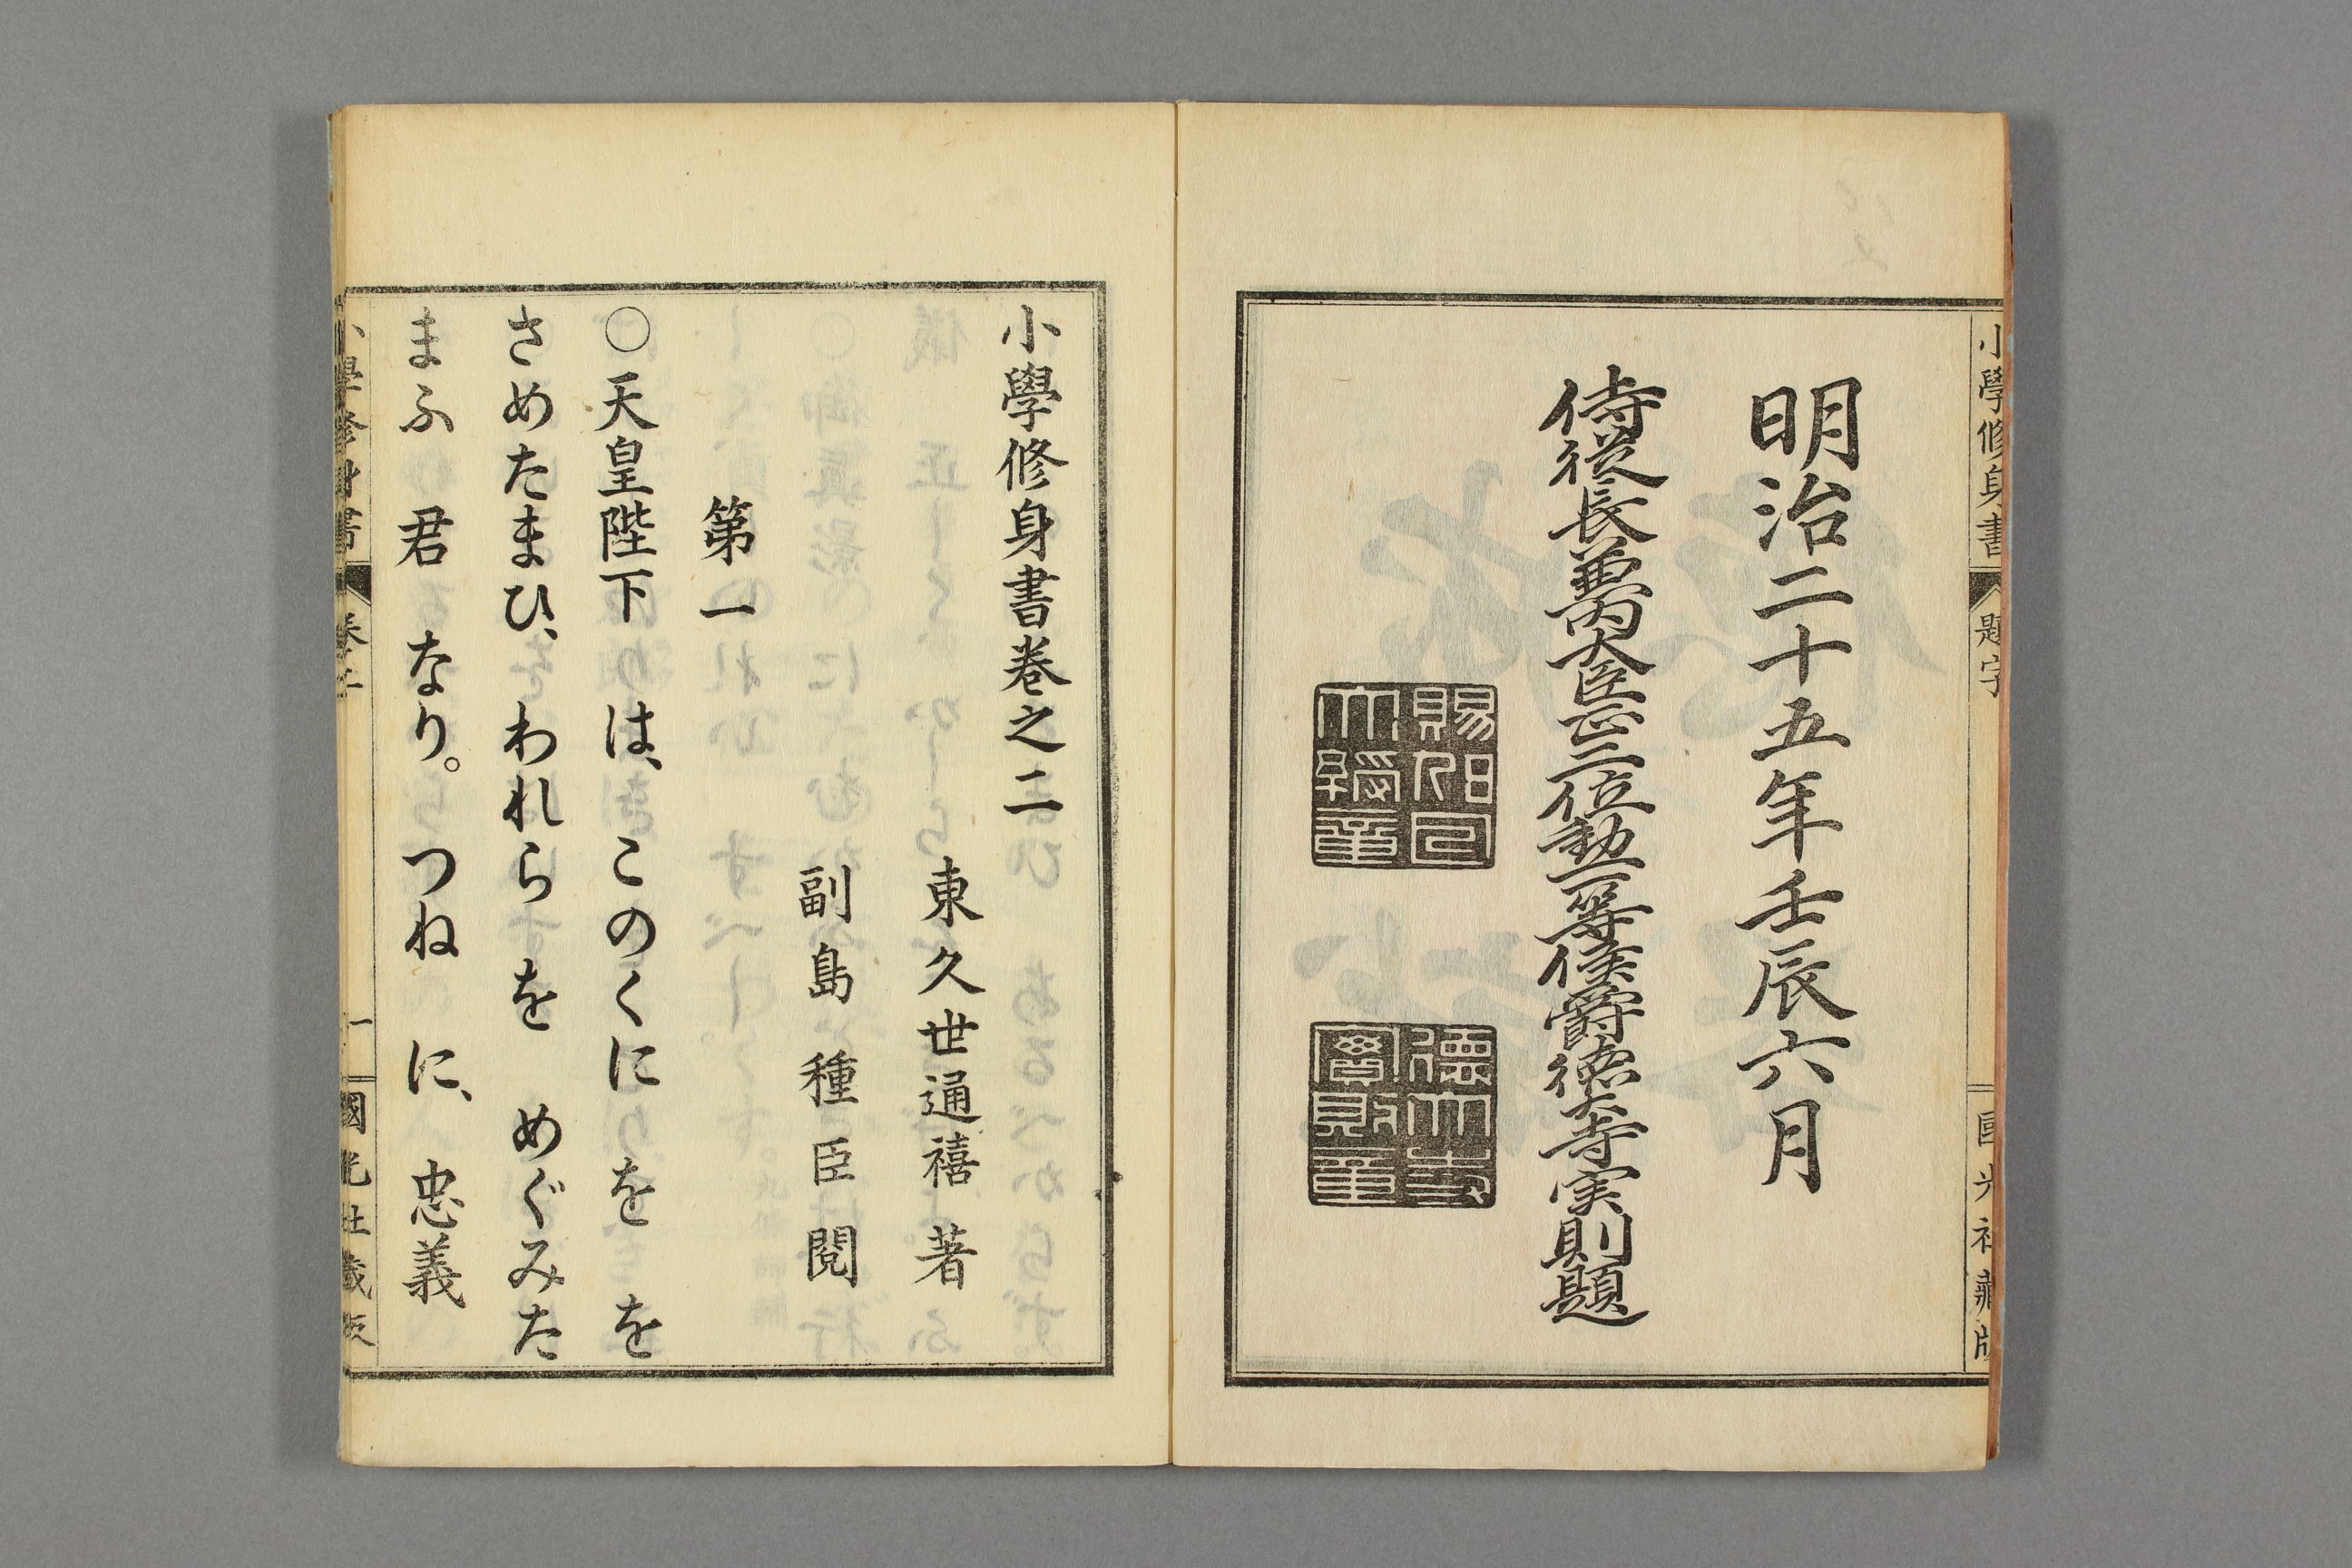 小學修身書 題字 國光社藏版
明治二十五年壬辰六月
侍從長兼内大臣正二位勲一等侯爵徳大寺実則題
小學修身書卷之二
東久世通禧 著
副島種臣 閲
第一
○天皇陛下 は、このくに を を
さめたまひ、われら を めぐみた
まふ 君 なり。つね に、忠義
小學修身書 卷之二 一 國光社藏版